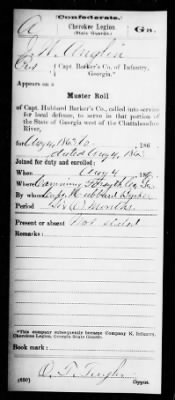 Confederate.
A Cherokee Legion Ga.
(State Guards.)
J. W. Anglin
Pvt { Capt. Barker's Co. of Infantry,
Georgia.*
Appears on a
Muster Roll
of Capt. Hubbard Barker's Co., called into service
for local defense, to serve in that portion of
the State of Georgia west of the Chattahoochee
River,
for Aug 4, 186
dated Aug 4, 186
Joined for duty and enrolled:
When Aug 4 186
Where Cumming Forsyth Co. Ga.
By whom Capt. Hubbard Barker
Period Six Months
Present or absent Not stated
Remarks:
*This company subsequently became Company K, Infantry,
Cherokee Legion, Georgia State Guards.
Book mark:
(650) Copyist.